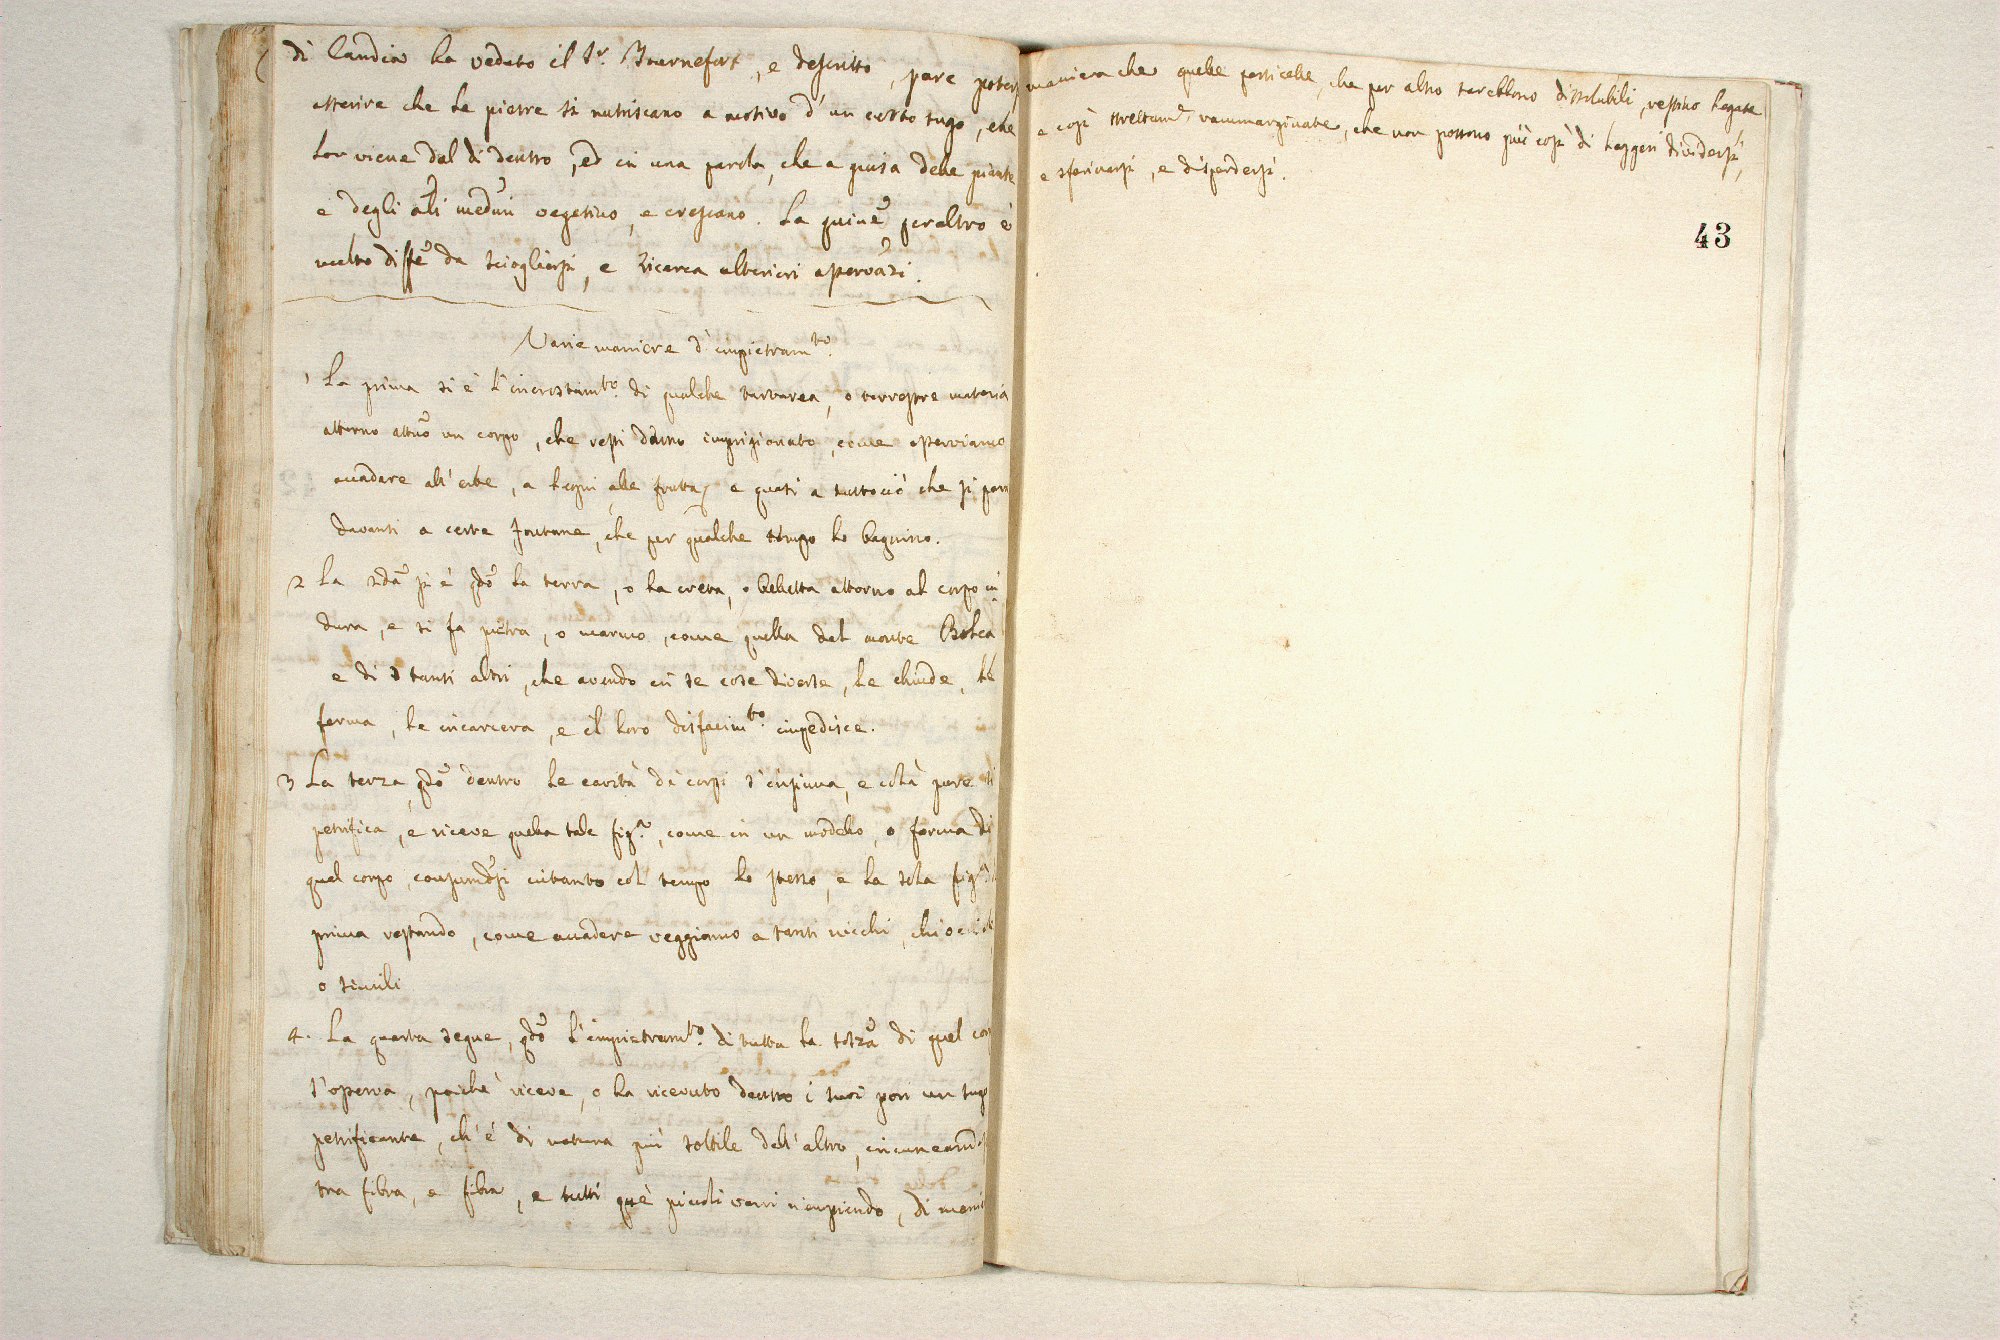 di Candia ha veduto il Sr. Tournefort, e descritto, pare poters
asserire che le pietre si nutriscano a motivo d'un certo sugo, che
lor viene dal di dentro, ed in una parola, che a guisa delle piante
e degli alti medmi vegetino, e crescano. La quine peraltro è
molto diffe da sciogliersi, e ricerca ulteriori osservazi.
Varie maniere d'impietramto.
1 La prima si è l'incrostamto. di qualche tartarea, o terrestre materia
attorno attno un corpo, che resti dentro imprigionato, come osserviamo
accadere all'erbe, a legni, alle frutta, e quasi a tuttociò che si para
davanti a certe fontane, che per qualche tempo lo bagnino.
2 La 2da si è qdo la terra, o la creta, o belletta attorno al corpo in
dura, e si fa pietra, o marmo, come quella del monte Bolca
e di tanti altri, che avendo in se cose diverse, le chiude, le
ferma, le incarcera, e il loro disfacimto. impedisce.
3 La terza, qdo dentro le cavità de corpi s'insinua, e colà pure si
petrifica, e riceve quella tale figa., come in un modello, o forma di
quel corpo, consumdosi intanto col tempo lo stesso, e la sola figa di
prima restando, come accadere veggiamo a tanti nicchi, chiocciole
o simili
4. La quarta segue, qdo l'impietramto. di tutta la sotza di quel cor
s'osserva, poichè riceve, o ha ricevuto dentro i suoi pori un sugo
petrificante, ch'è di natura più sottile dell'altro, incuneando
tra fibra, e fibra, e tutti que piccoli vani riempiendo, di mani
maniera che quelle particelle, che per altro sarebbono dissolubili, restino legate
e così strettame. rammarginate, che non possono più così di leggeri dividersi,
e sfarinarsi, e disperdersi.
43